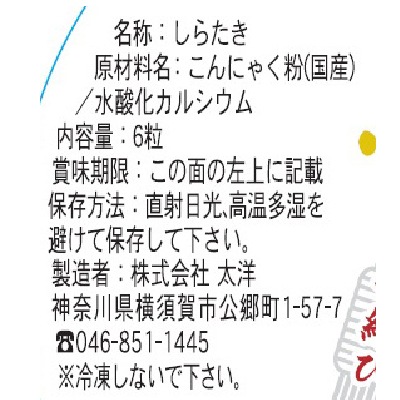 名称：しらたき
原材料名：こんにゃく粉(国産)
／水酸化カルシウム
内容量：6粒
賞味期限：この面の左上に記載
保存方法：直射日光、高温多湿を
避けて保存して下さい。
製造者：株式会社 太洋
神奈川県横須賀市公郷町1-57-7
☎046-851-1445
※冷凍しないで下さい。